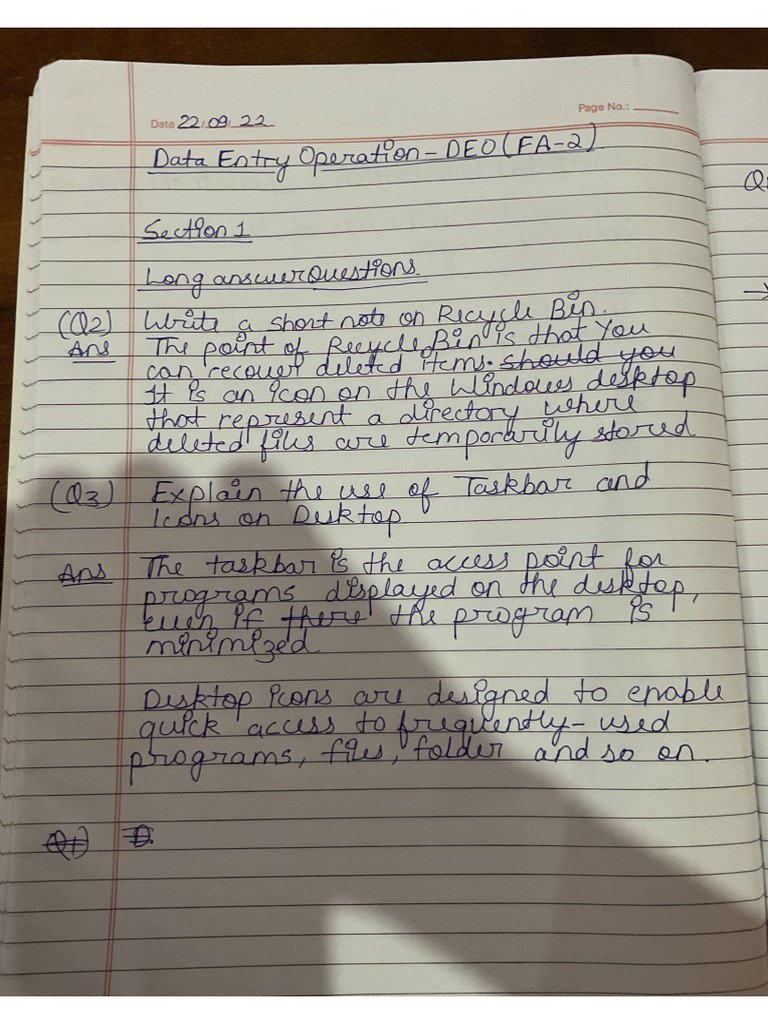 Page No.:
Date 22/09/22
Data Entry Operation - DEO (FA-2)
Q
Section 1
Long answer Questions.
(Q2) Write a short note on Recycle Bin.
Ans The point of Recycle Bin is that You
can recover deleted items. should you
It is an icon on the Windows desktop
that represent a directory where
deleted files are temporarily stored
(Q3) Explain the use of Taskbar and
Icons on Desktop
Ans The taskbar is the access point for
programs displayed on the desktop,
even if there the program is
minimized
Desktop icons are designed to enable
quick access to frequently-used
programs, files, folder and so on.
Q1) D.